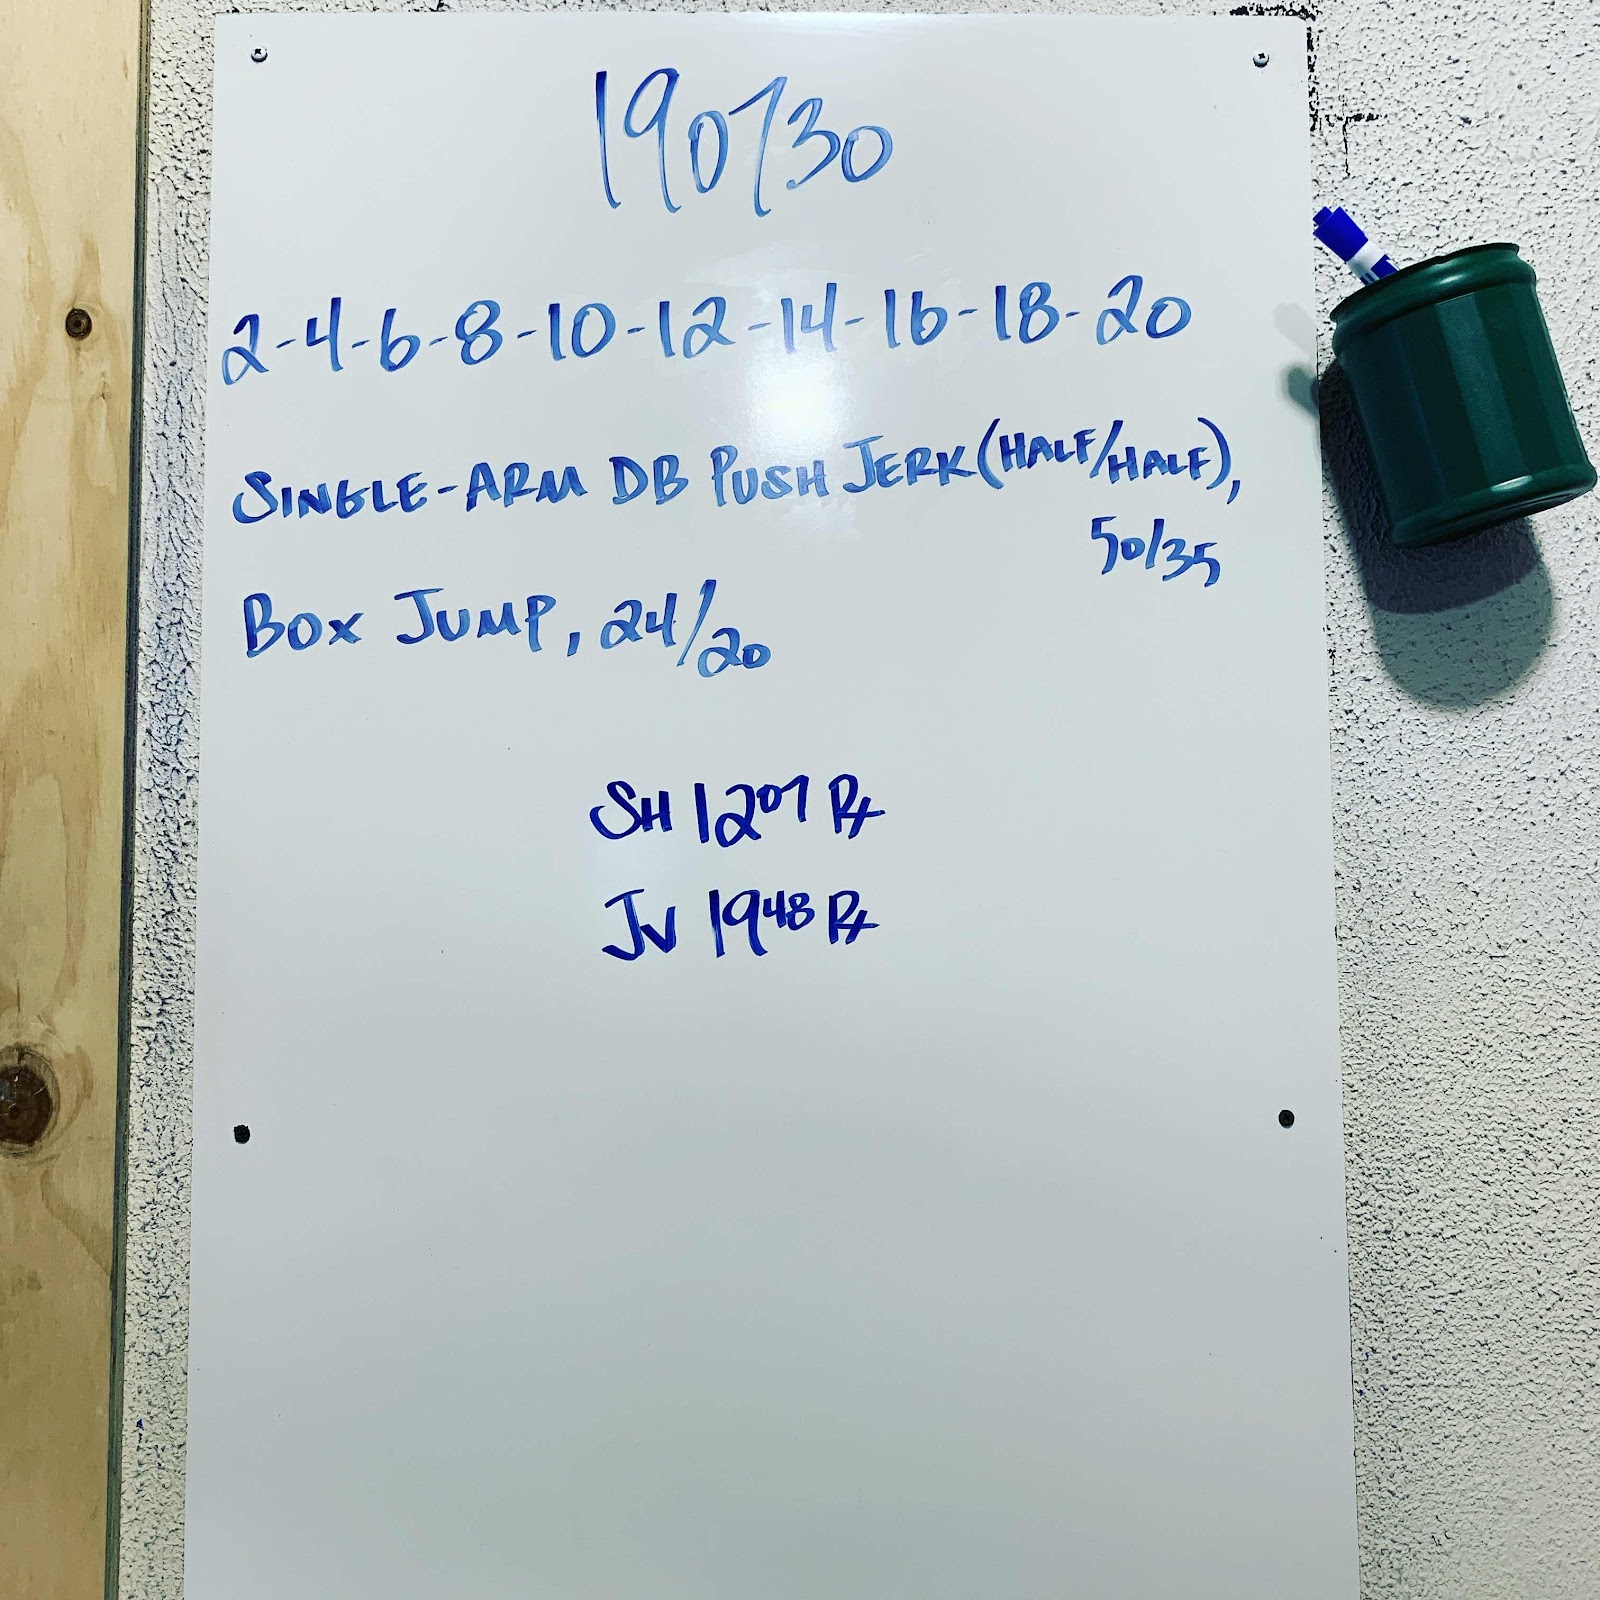 190730
2-4-6-8-10-12-14-16-18-20
SINGLE-ARM DB PUSH JERK (HALF/HALF),
50/35
BOX JUMP, 24/20
SH 1207 Rx
JV 1948 Rx